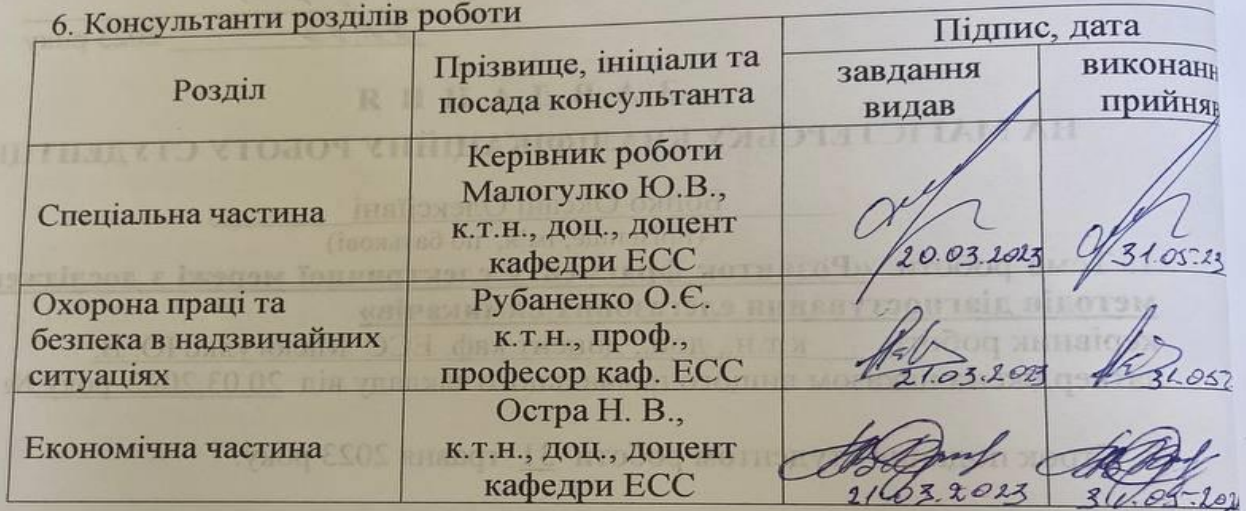 6. Консультанти розділів роботи
Розділ
Прізвище, ініціали та
посада консультанта
Підпис, дата
завдання
видав
виконанн
прийняв
Спеціальна частина
Керівник роботи
Малогулко Ю.В.,
к.т.н., доц., доцент
кафедри ЕСС
20.03.2023
31.05.23
Охорона праці та
безпека в надзвичайних
ситуаціях
Рубаненко О.Є.
к.т.н., проф.,
професор каф. ЕСС
21.03.2023
31.052
Економічна частина
Остра Н. В.,
к.т.н., доц., доцент
кафедри ЕСС
21.03.2023
31.05.202